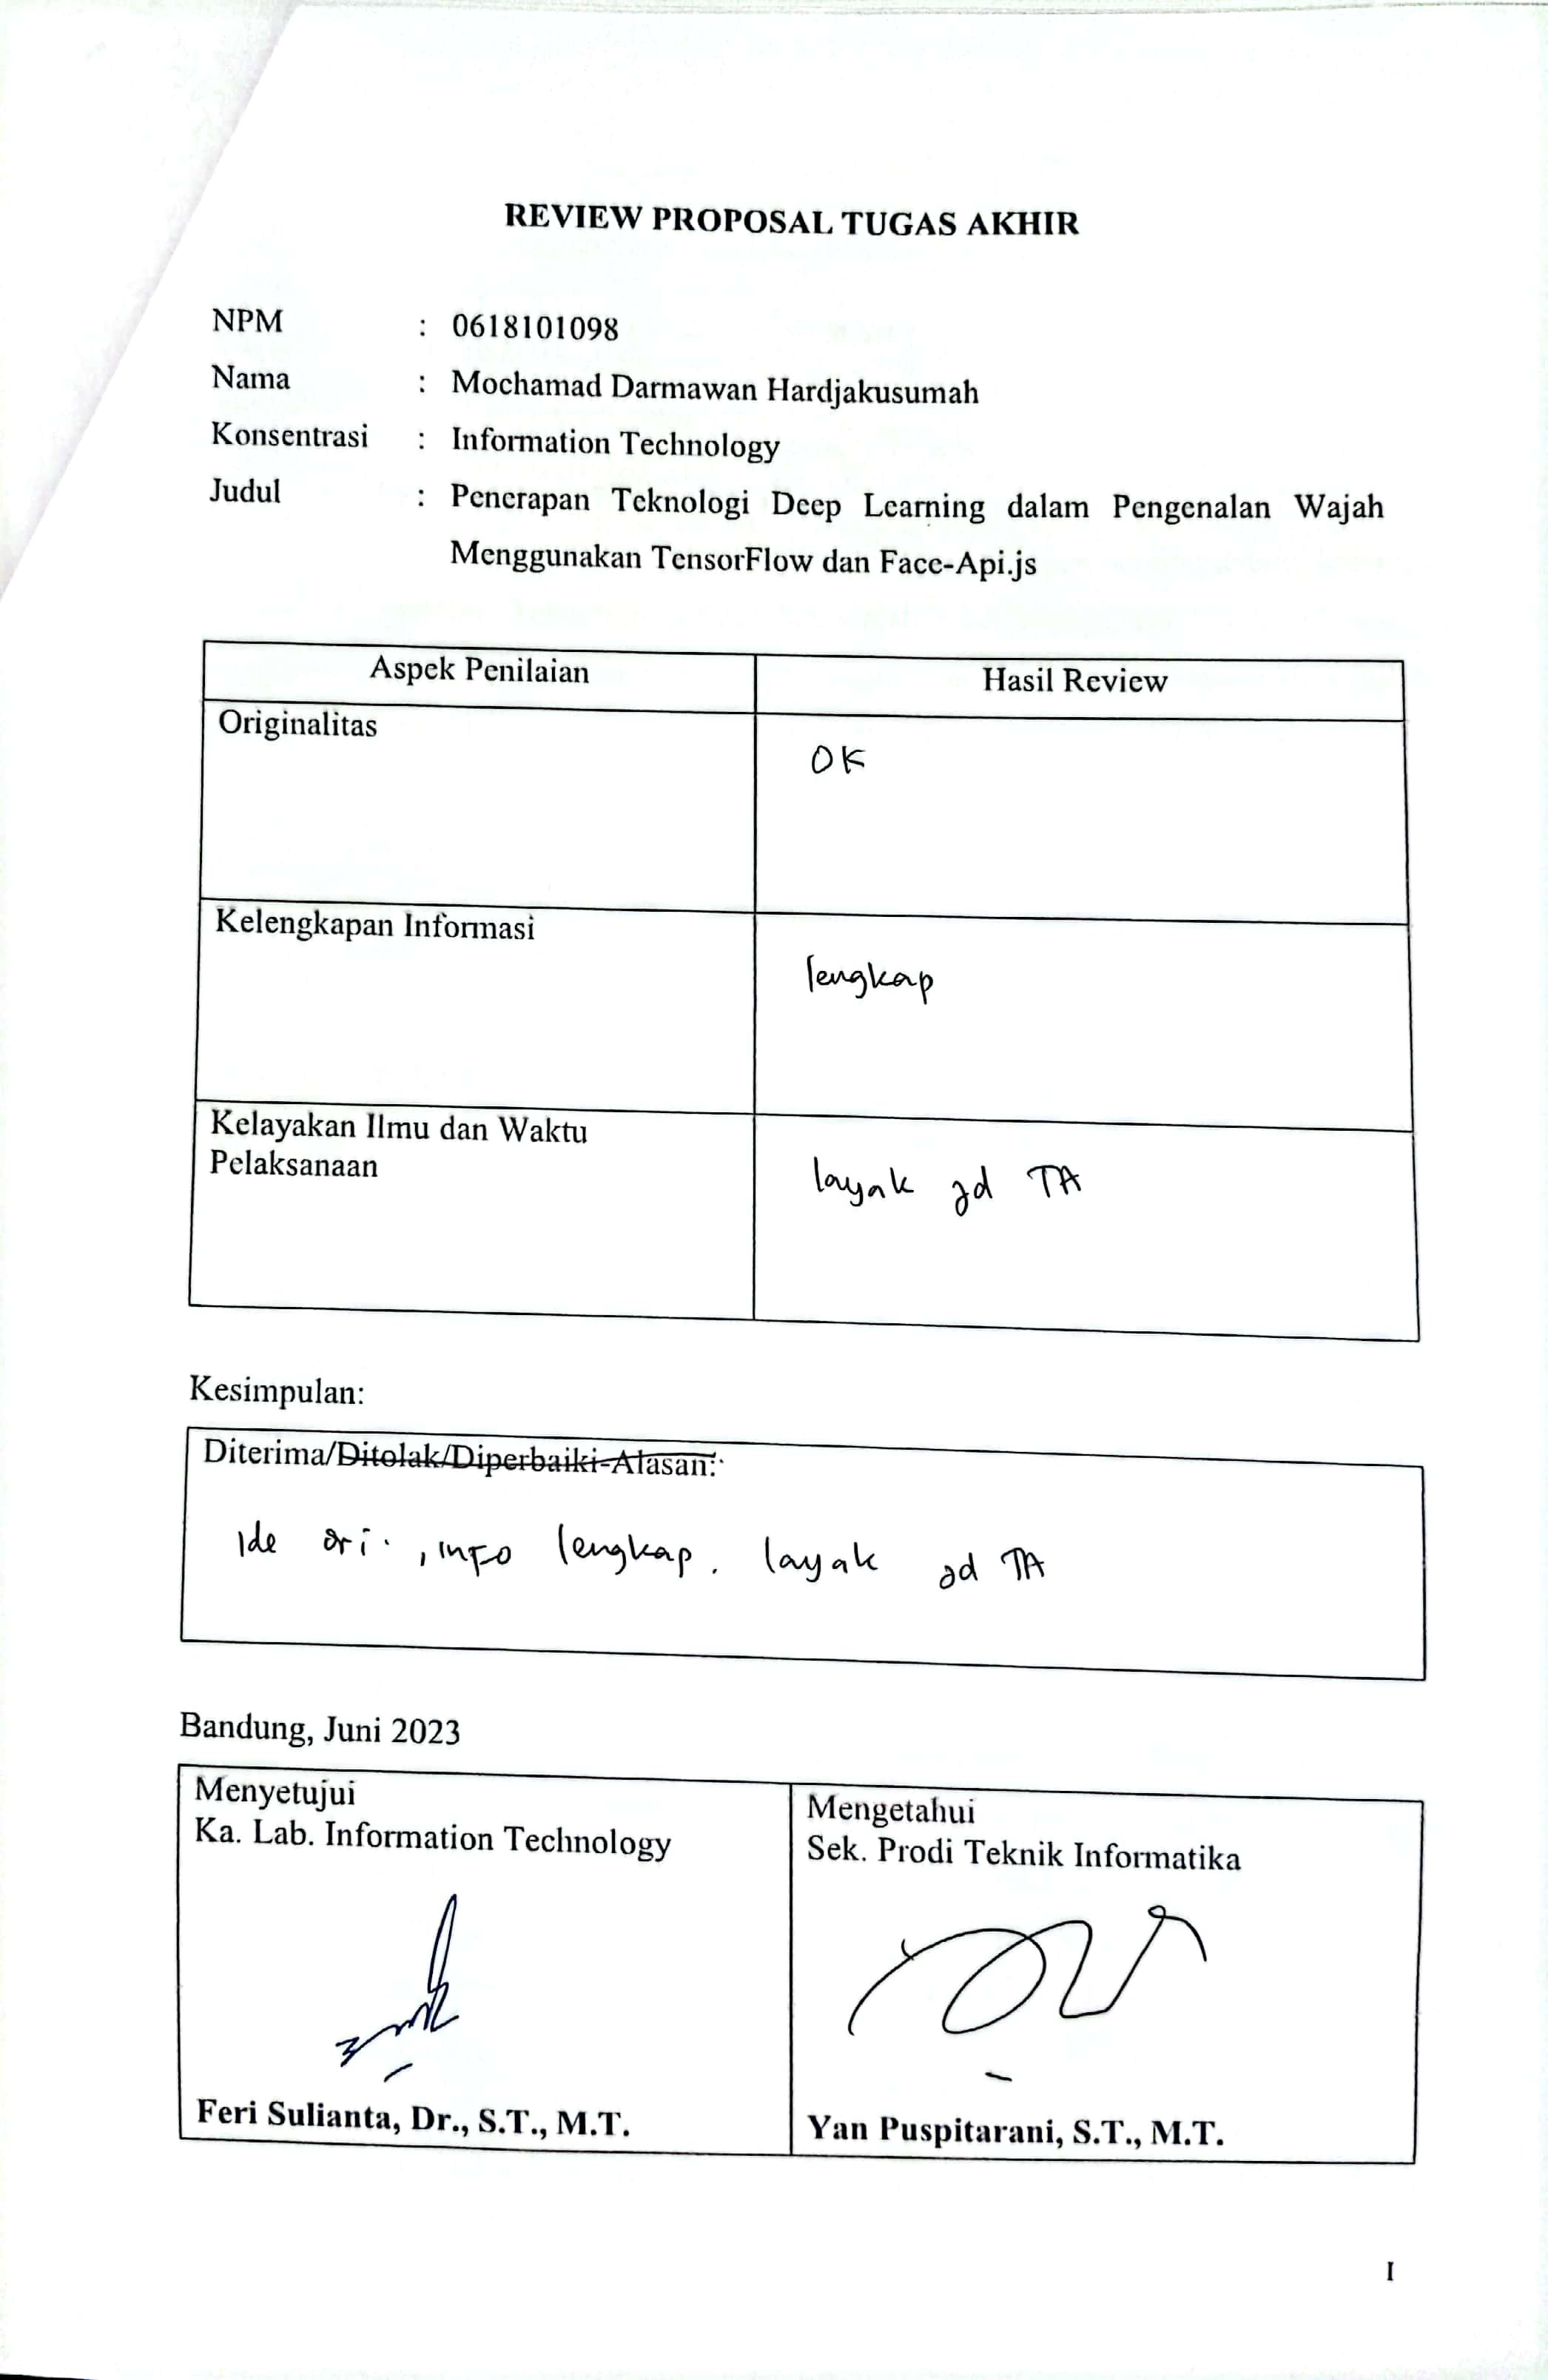 REVIEW PROPOSAL TUGAS AKHIR
NPM : 0618101098
Nama : Mochamad Darmawan Hardjakusumah
Konsentrasi : Information Technology
Judul : Penerapan Teknologi Deep Learning dalam Pengenalan Wajah
Menggunakan TensorFlow dan Face-Api.js
Aspek Penilaian Hasil Review
Originalitas
OK
Kelengkapan Informasi
lengkap
Kelayakan Ilmu dan Waktu
Pelaksanaan
layak jd TA
Kesimpulan:
Diterima/Ditolak/Diperbaiki-Alasan:
Ide ori. , info lengkap. layak jd TA
Bandung, Juni 2023
Menyetujui
Ka. Lab. Information Technology
Feri Sulianta, Dr., S.T., M.T.
Mengetahui
Sek. Prodi Teknik Informatika
Yan Puspitarani, S.T., M.T.
I